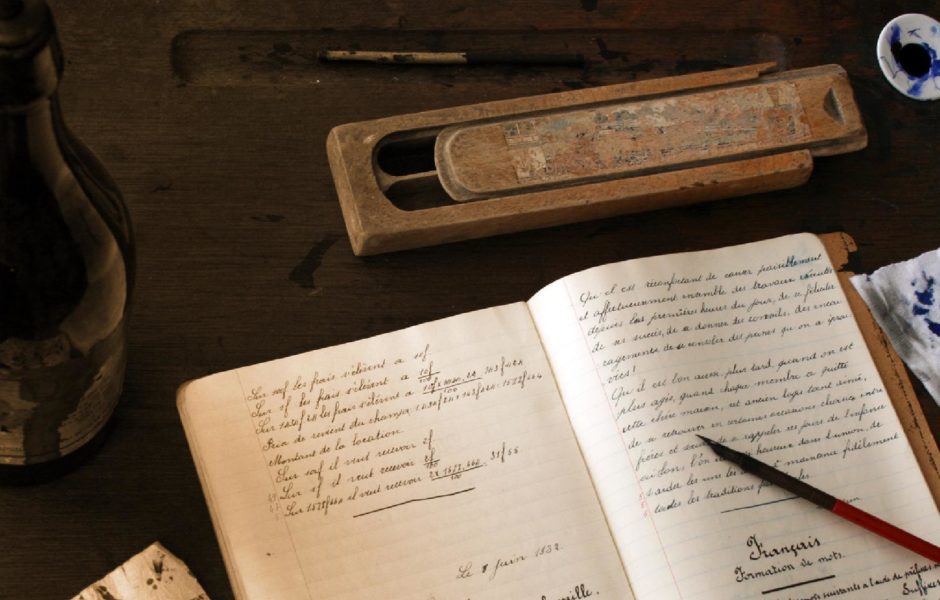 Sur 100f les frais s'élèvent à 10f
Sur 1f les frais s'élèvent à 10f/100
Sur 1420f24 les frais s'élèvent à
Prix de revient du champ
Montant de la location.
Sur 100f il veut recevoir 2f
Sur 1f il veut recevoir 2f/100
il veut recevoir 31f
Le 8 Juin 1932.
famille.
Qu'il est réconfortant de causer paisiblement
et affectueusement ensemble des travaux exécutés
depuis les premières heures du jour, de se féliciter
de ses succès, de se donner des conseils, des encou
ragements, de se consoler des peines qu'on a éprou
vées!
Qu'il est bon aussi, plus tard, quand on est
plus âgés, quand chaque membre a quitté
cette chère maison, cet ancien logis tant aimé,
de se retrouver en certaines occasions chéries entre
frères et sœurs, de se rappeler ses jours de l'enfance
où l'on heureux dans l'union, de
s'aider les uns les d maintenir fidèlement
toutes les traditions familiales.
Français
Formation de mots.
mots suivants à l'aide de préfixes
suffixes